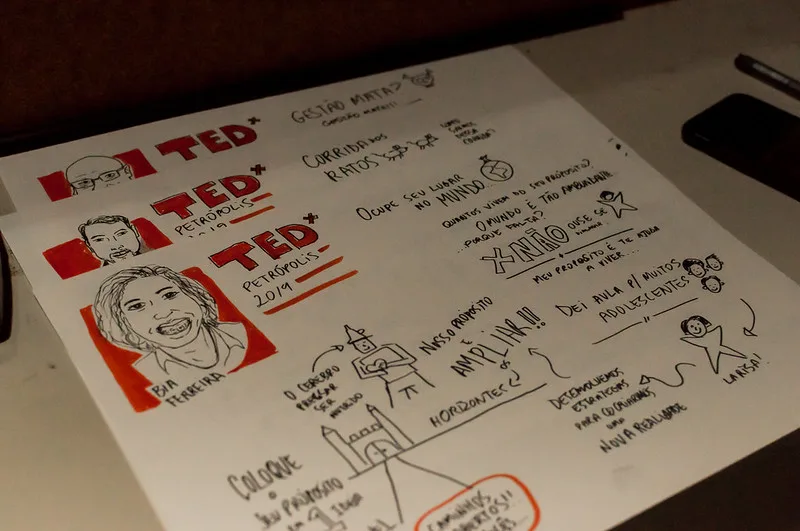 TED x
GESTÃO MATA?
TED x
PETRÓPOLIS
2019
CORRIDA DOS
RATOS
TED x
PETRÓPOLIS
2019
BIA
FERREIRA
OCUPE SEU LUGAR
NO MUNDO
QUANTOS VIVEM DO SEU PROPÓSITO?
O MUNDO É TÃO AMBULANTE
...PORQUE FALTA?
NÃO OUSE SE
MEU PROPÓSITO É TE AJUDA
A VIVER...
DEI AULA P/ MUITOS
ADOLESCENTES
LARISA!!
DETENVOLVEMOS
ESTRATÉGIAS
PARA COCRIARMOS
UMA
NOVA REALIDADE
NOSSO PROPÓSITO
É
AMPLIAR!!
OS
HORIZONTES
O CÉREBRO
PRECISAR
SER
COLOQUE
O
SEU PROPÓSITO
EM 1 IDEA
CAMINHOS
ABERTOS!!